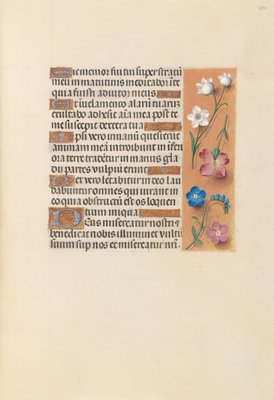 Sic memor fui tui super stratū
meū in matutinis meditabor in te
quia fuisti adiutor meus
Et in velamento alarū tuarū
exultabo adhesit aīa mea post te
me suscepit dextera tua
Ipsi vero in vanū quesierūt
animam meā introibunt in īferi
ora terre tradētur in manus gla
dii partes vulpiū erunt
Rex vero letabitur in deo lau
dabuntur omnes qui iurant in
eo quia obstructū est os loquen
tium iniqua
Deus misereatur nostri
benedicat nobis illuminet vultū
suum sup nos et misereatur nrī